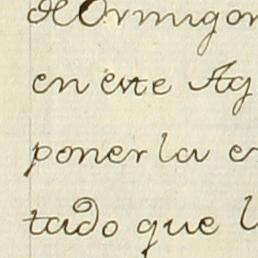 de Ormigon
en este Ag
poner la e
tado que l